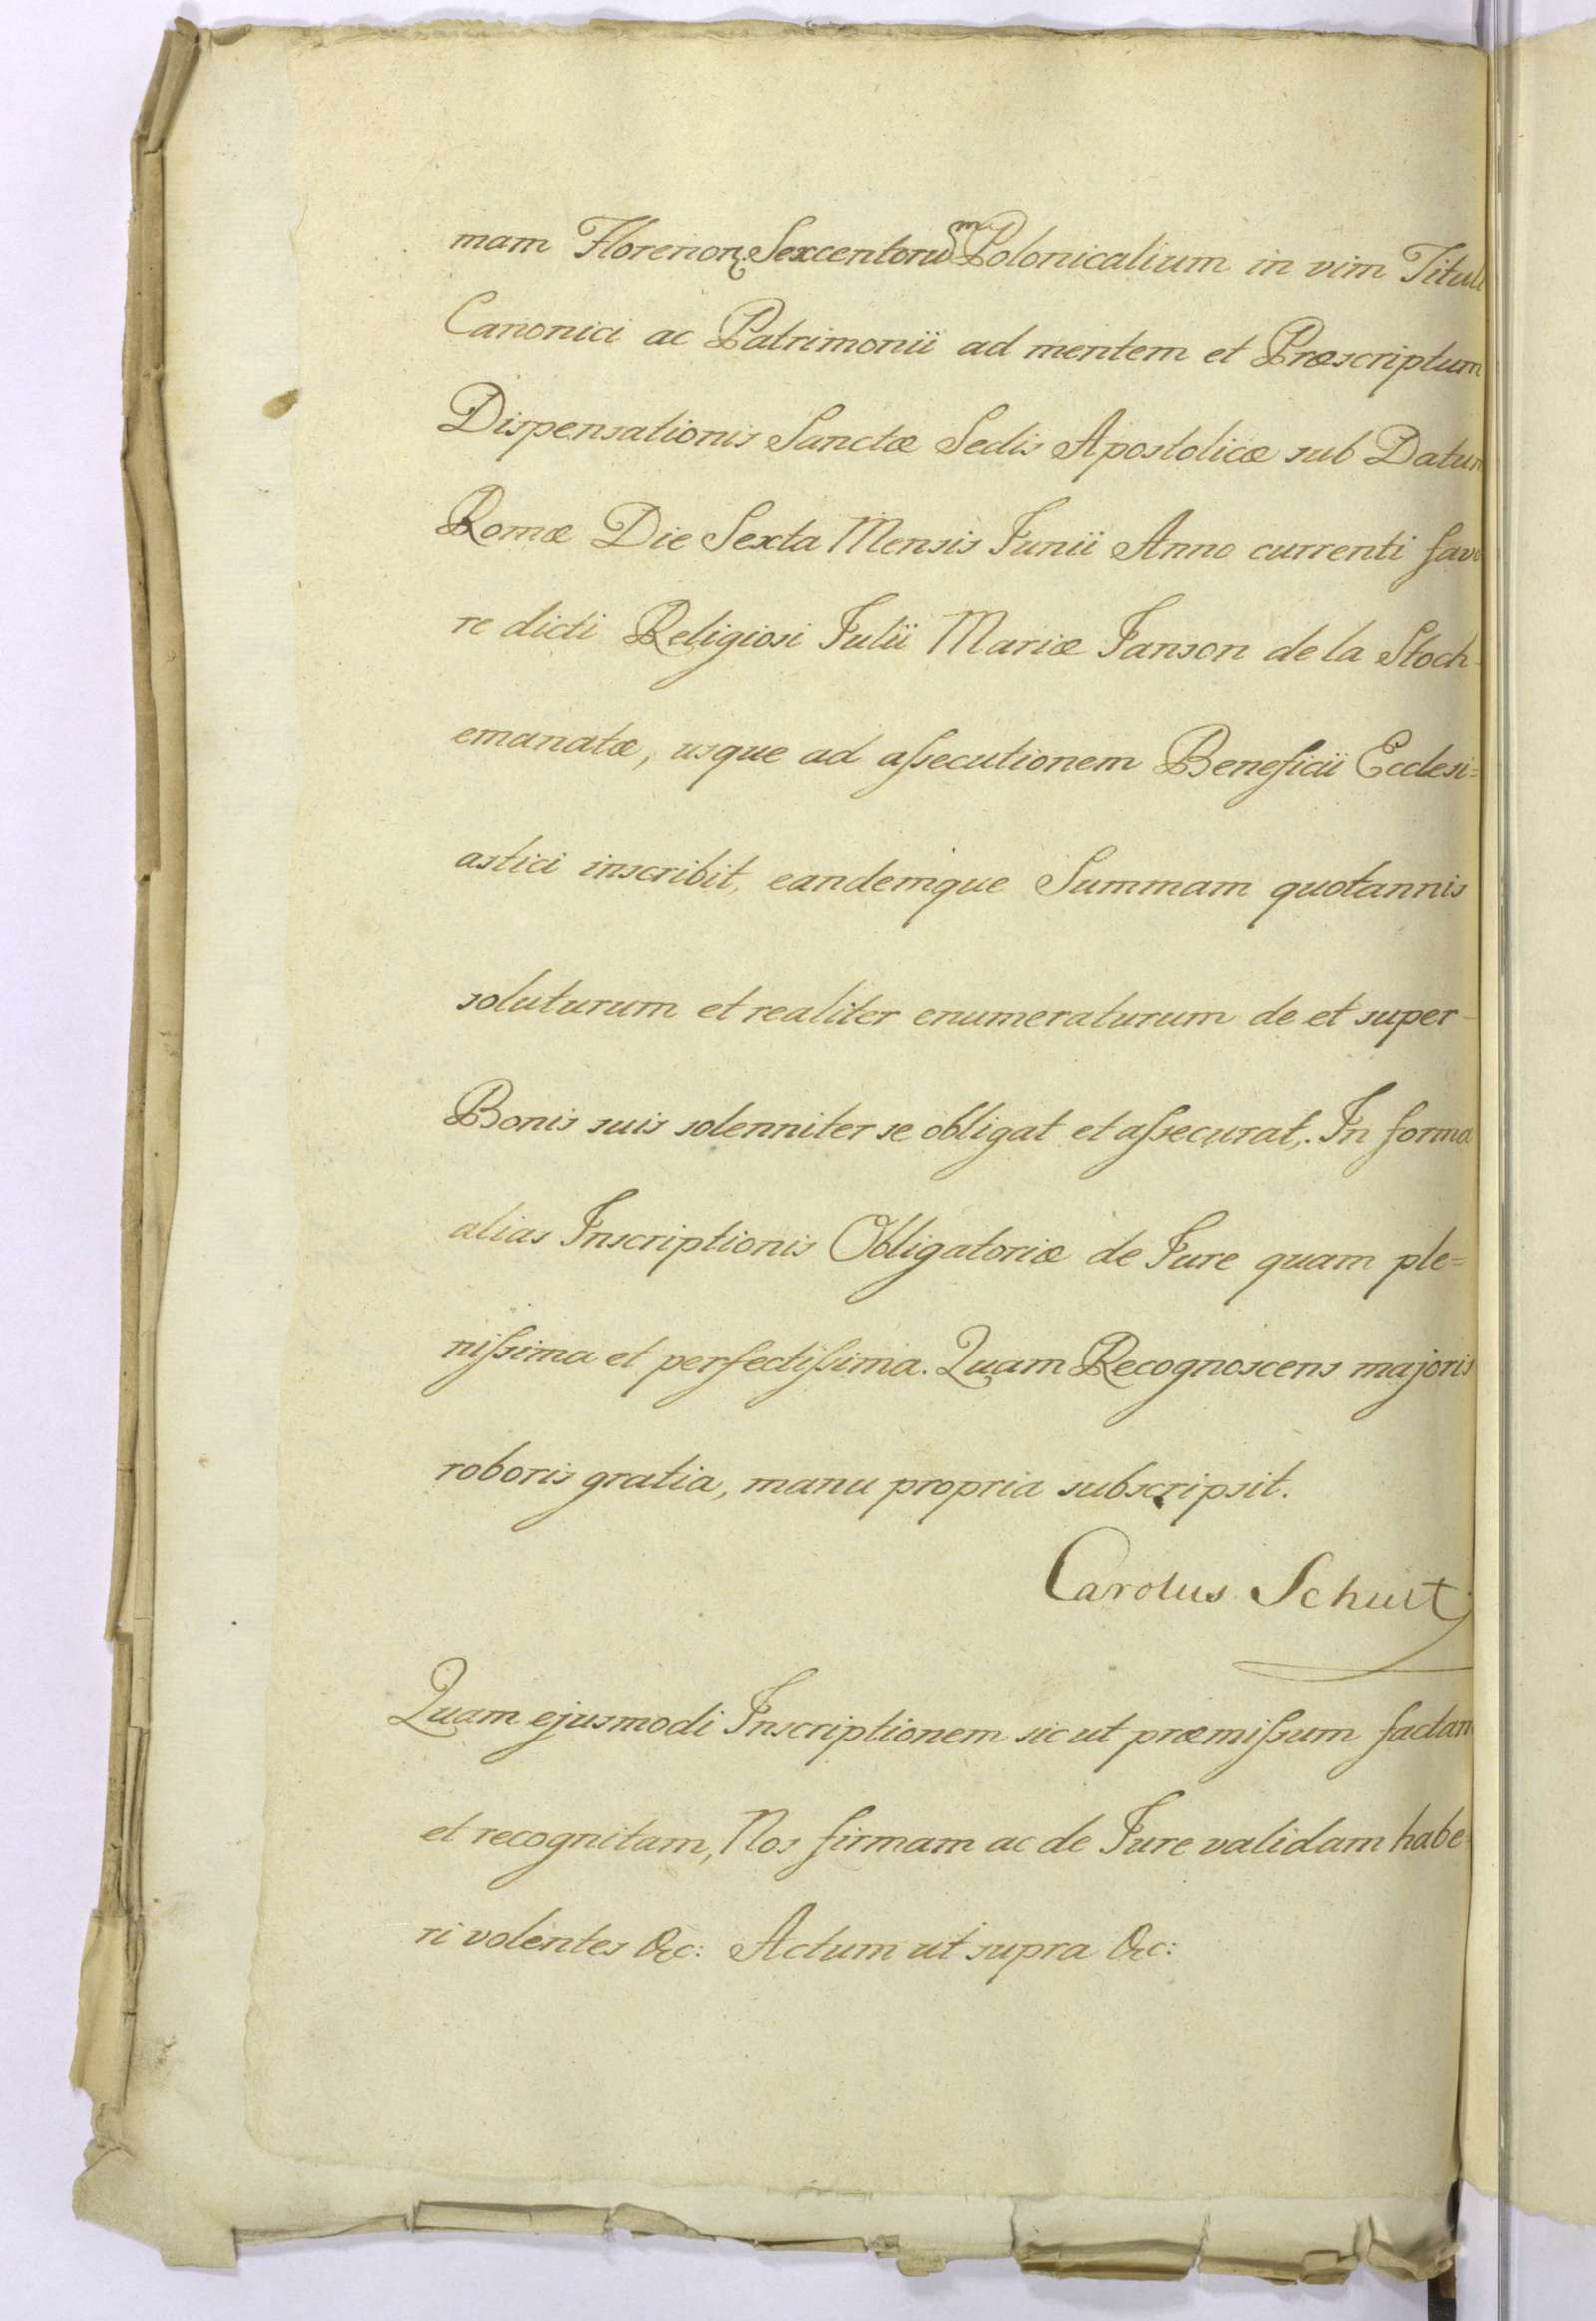 mam Florenor. Sexcentorum Polonicalium in vim Tituli
Canonici ac Patrimonii ad mentem et Præscriptum
Dispensationis Sanctæ Sedis Apostolicæ sub Datum
Romæ Die Sexta Mensis Junii Anno currenti favo
re dicti Religiosi Julii Mariæ Janson de la Stoch
emanatæ, usque ad assecutionem Beneficii Ecclesi=
astici inscribit, eandemque Summam quotannis
soluturum et realiter enumeraturum de et super
Bonis suis solenniter se obligat et assecurat,. In forma
alias Inscriptionis Obligatoriæ de Jure quam ple=
nissima et perfectissima. Quam Recognoscens majoris
roboris gratia, manu propria subscripsit.
Carolus Schult
Quam ejusmodi Inscriptionem sic ut præmissum factam
et recognitam, Nos firmam ac de Jure validam habe=
ri volentes &c: Actum ut supra &c: